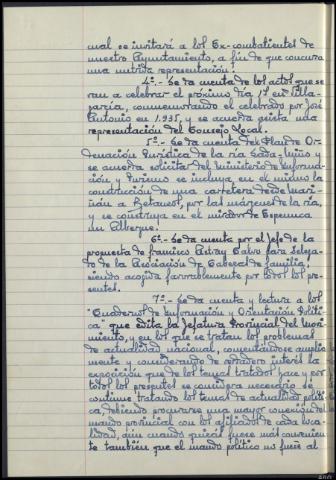 cual se invitará a los Ex-combatientes de
nuestro Ayuntamiento, a fin de que concurra
una nutrida representación.
4º.- Se da cuenta de los actos que se
van a celebrar el próximo día 17 en Villa-
garcía, conmemorando el celebrado por José
Antonio en 1.935, y se acuerda asista una
representación del Consejo Local.
5º.- Se da cuenta del Plan de Or-
denación Turística de la ría Sada-Miño y
se acuerda solicitar del Ministerio de Informa-
ción y Turismo se incluya en el mismo la
construcción de una carretera desde
a Betanzos, por las márgenes de la ría,
y se construya en el mirador de Espenuca
un Albergue.
6º.- Se da cuenta por el Jefe de la
propuesta de Francisco Astray Calvo para Delega-
do de la Asociación de Cabezas de Familia,
siendo acogida favorablemente por todos los pre-
sentes.
7º.- Se da cuenta y lectura a los
"Cuadernos de Información y Orientación Políti-
ca" que edita la Jefatura Provincial del Movi-
miento, y en los que se tratan los problemas
de actualidad nacional, comentándose amplia-
mente y considerando de verdadero interés la
exposición que de los temas tratados hace y por
todos los presentes se considera necesario se
continúe tratando los temas de actualidad políti-
ca, debiendo procurarse una mayor conexión del
mando provincial con los afiliados de cada loca-
lidad, aún cuando quizás fuese más convenien-
te también que el mando político no fuese al